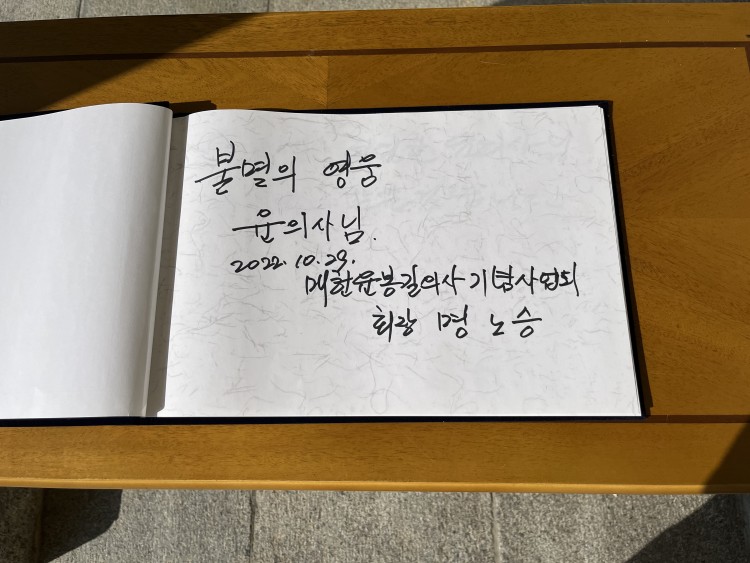 불멸의 영웅
윤의사님.
2022. 10. 29.
매헌윤봉길의사 기념사업회
회장 명 노 승